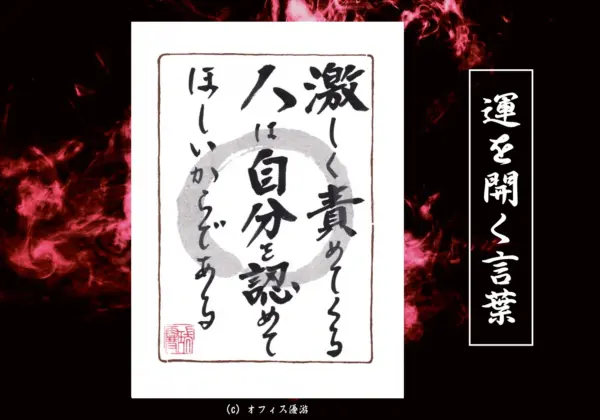 運を開く言葉
激しく責めてくる
人は自分を認めて
ほしいからである
(C) オフィス優游